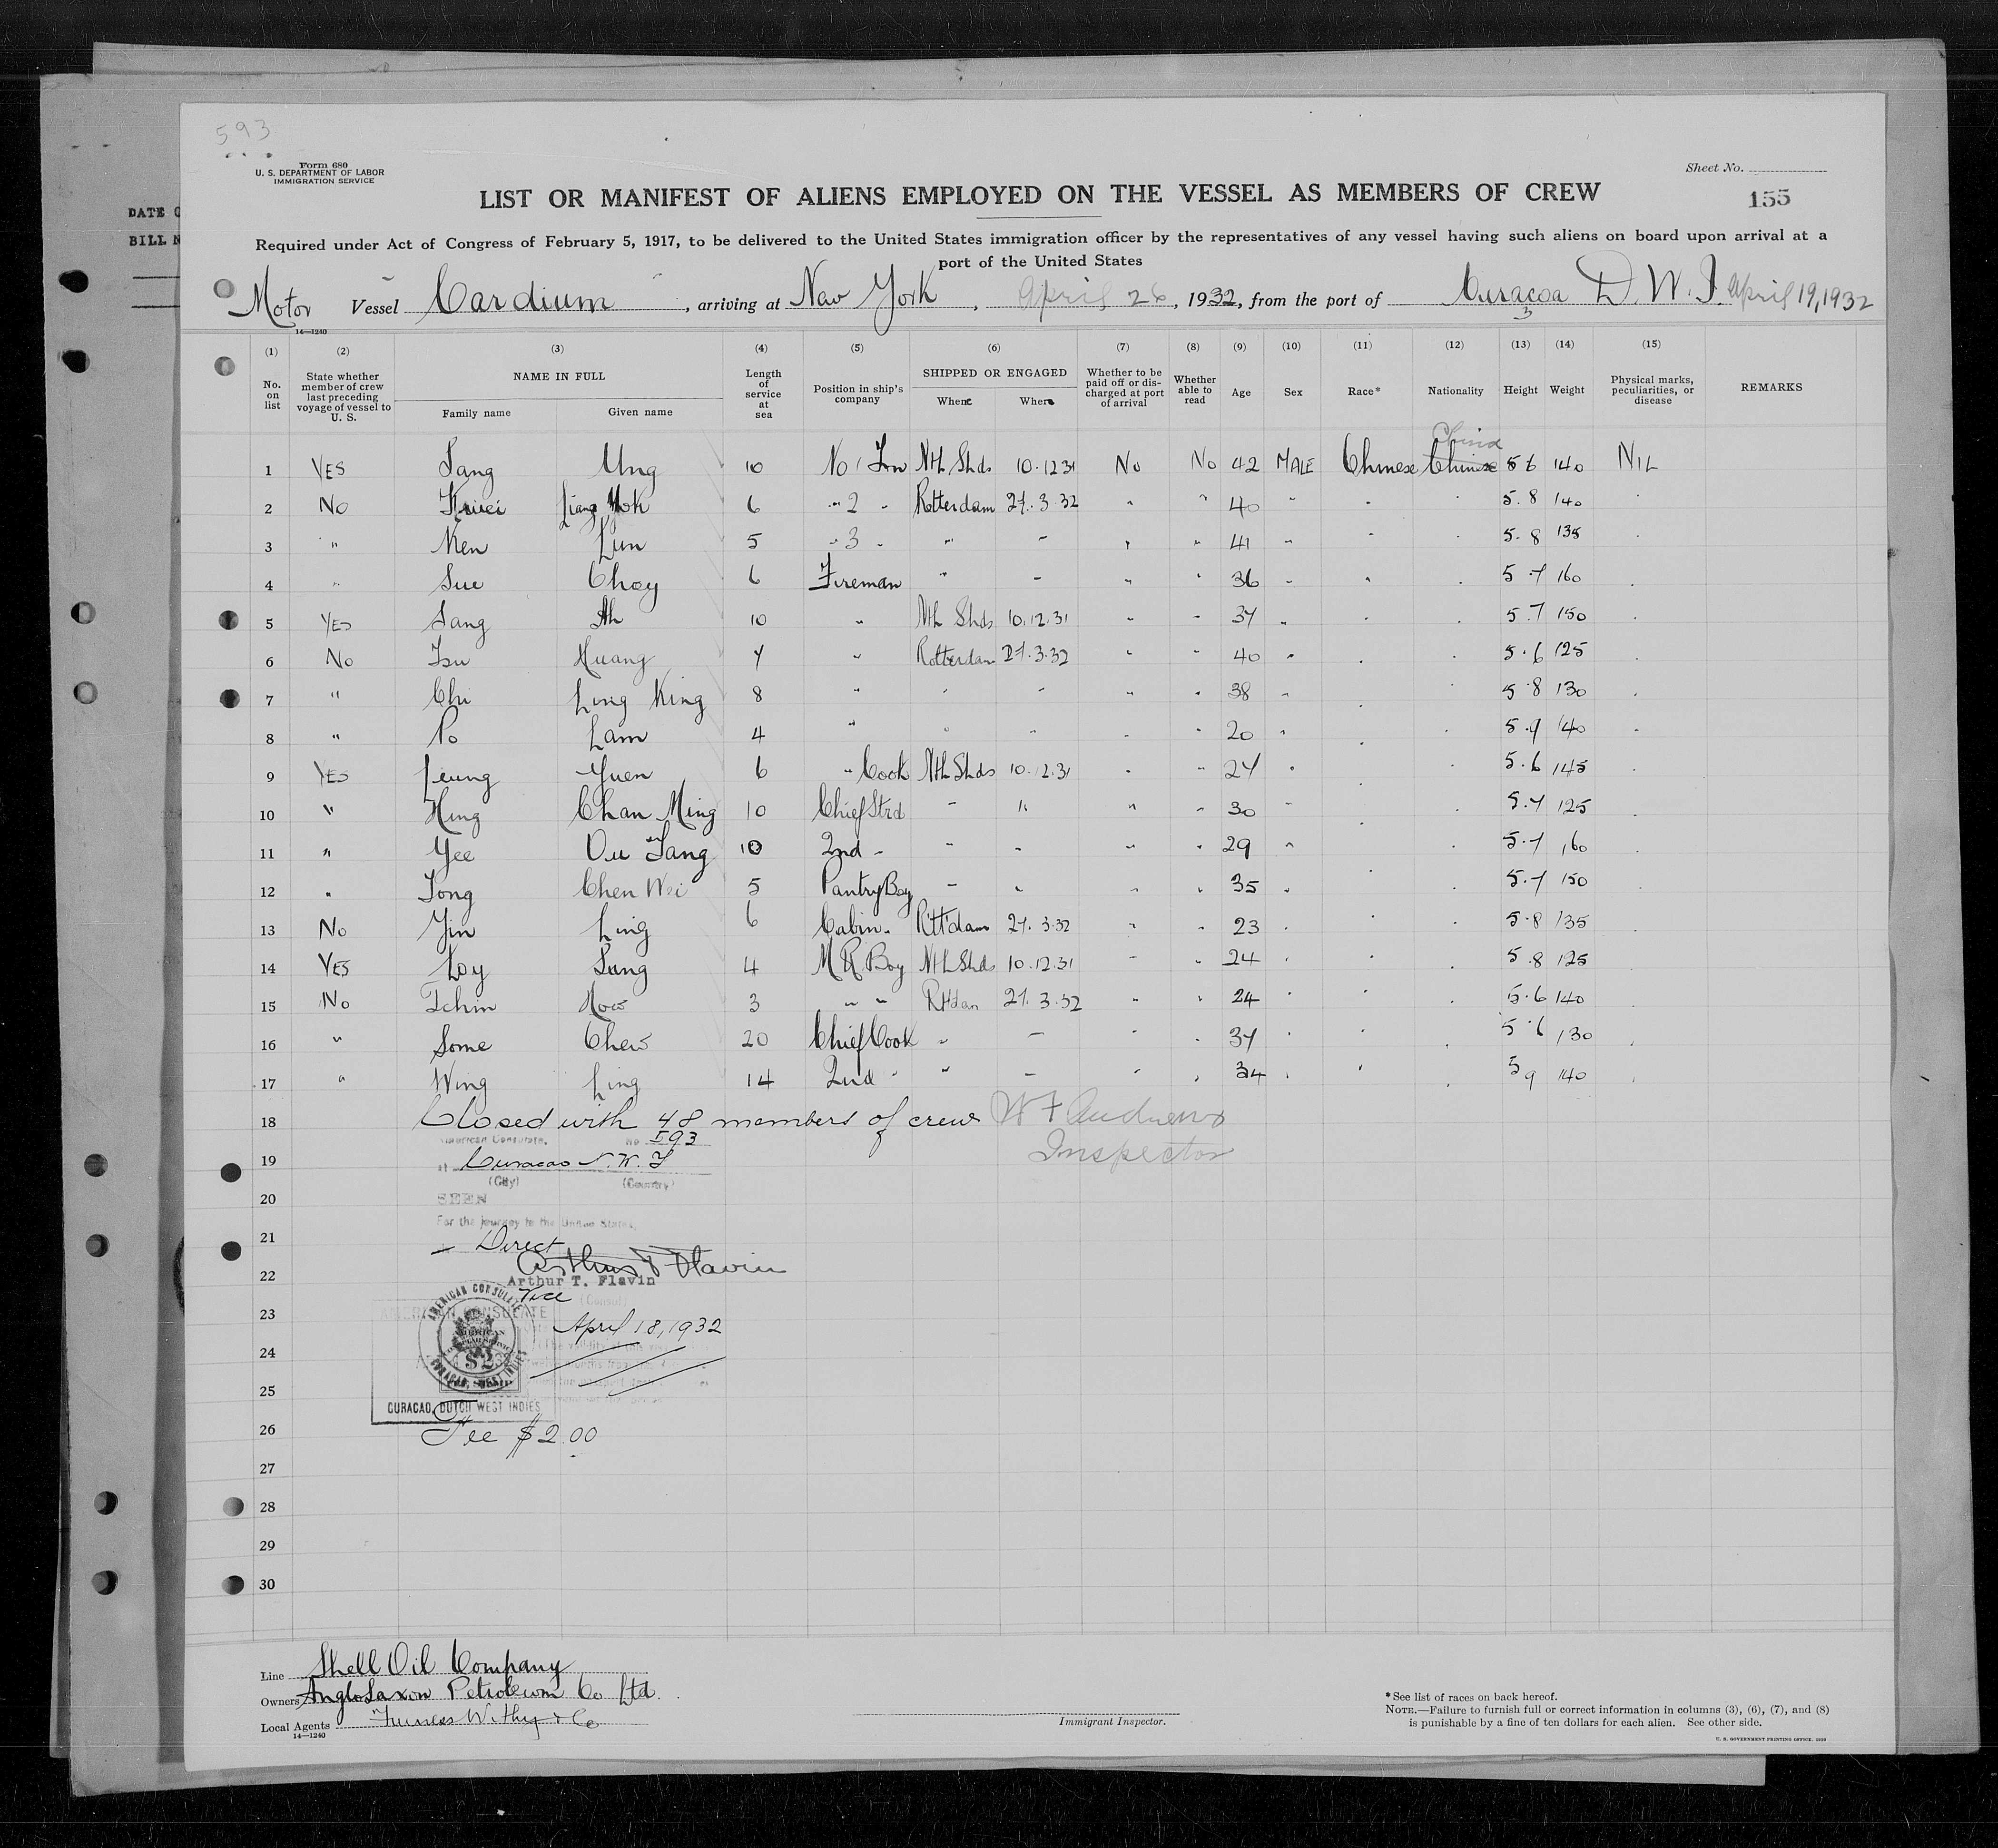 593
Form 680
U. S. DEPARTMENT OF LABOR
IMMIGRATION SERVICE
Sheet No.
LIST OR MANIFEST OF ALIENS EMPLOYED ON THE VESSEL AS MEMBERS OF CREW
155
DATE
BILL
Required under Act of Congress of February 5, 1917, to be delivered to the United States immigration officer by the representatives of any vessel having such aliens on board upon arrival at a
port of the United States
Motor Vessel Cardium, arriving at New York, April 26, 1932, from the port of Curacoa D. W. I. April 19, 1932
14—1240
(1) (2) (3) (4) (5) (6) (7) (8) (9) (10) (11) (12) (13) (14) (15)
No. on list State whether member of crew last preceding voyage of vessel to U. S. NAME IN FULL Family name Given name Length of service at sea Position in ship's company SHIPPED OR ENGAGED When Where Whether to be paid off or discharged at port of arrival Whether able to read Age Sex Race* Nationality Height Weight Physical marks, peculiarities, or disease REMARKS
China
1 YES Sang Ung 10 No 1 Nth Shds 10.12.31 No No 42 MALE Chinese Chinese 5 6 140 NIL
2 No 6 " 2 " Rotterdam 27.3.32 " " 40 " " " 5.8 140 "
3 " Ken Lun 5 " 3 " " " " " 41 " " " 5.8 135 "
4 " Sue Choy 6 Fireman " " " " 36 " " " 5 7 160 "
5 YES Sang Ah 10 " Nth Shds 10.12.31 " " 37 " " " 5.7 150 "
6 No Tsu Huang 7 " Rotterdam 27.3.32 " " 40 " " " 5.6 125 "
7 " Chi Ling King 8 " " " " " 38 " " " 5.8 130 "
8 " Po Lam 4 " " " " " 20 " " " 5.9 140 "
9 YES Leung Yuen 6 " Cook Nth Shds 10.12.31 " " 27 " " " 5.6 145 "
10 " Hing Chan Ming 10 Chief Strd " " " " 30 " " " 5.7 125 "
11 " Yee Ou Tang 10 2nd " " " " " 29 " " " 5.7 160 "
12 " Tong Chen Wei 5 Pantry Boy " " " " 35 " " " 5.7 150 "
13 No Yin Ling 6 Cabin " Rtt'dam 27.3.32 " " 23 " " " 5.8 135
14 YES Loy Sang 4 M R Boy Nth Shds 10.12.31 " " 24 " " " 5.8 125
15 No Tchin How 3 " " Rttdan 27.3.32 " " 24 " " " 5.6 140
16 " Some Chew 20 Chief Cook " " " " 37 " " " 5.6 130 "
17 " Wing Ling 14 2nd " " " " " 34 " " " 5 9 140 "
18 Closed with 48 members of crew W F Andrews
American Consulate, No 593
19 Inspector
at Curacao N. W. I
(City) (Country)
20 SEEN
For the journey to the United States,
21 Direct
Arthur T Flavin
22 Arthur T. Flavin
Vice (Consul)
23 AMERICAN CONSULATE
April 18, 1932
24 $2
25
CURACAO, DUTCH WEST INDIES
26 Fee $2.00
27
28
29
30
Line Shell Oil Company
Owners Anglo Saxon Petroleum Co Ltd.
Local Agents Furness Withy & Co
14—1240
Immigrant Inspector.
*See list of races on back hereof.
NOTE.—Failure to furnish full or correct information in columns (3), (6), (7), and (8)
is punishable by a fine of ten dollars for each alien. See other side.
U. S. GOVERNMENT PRINTING OFFICE